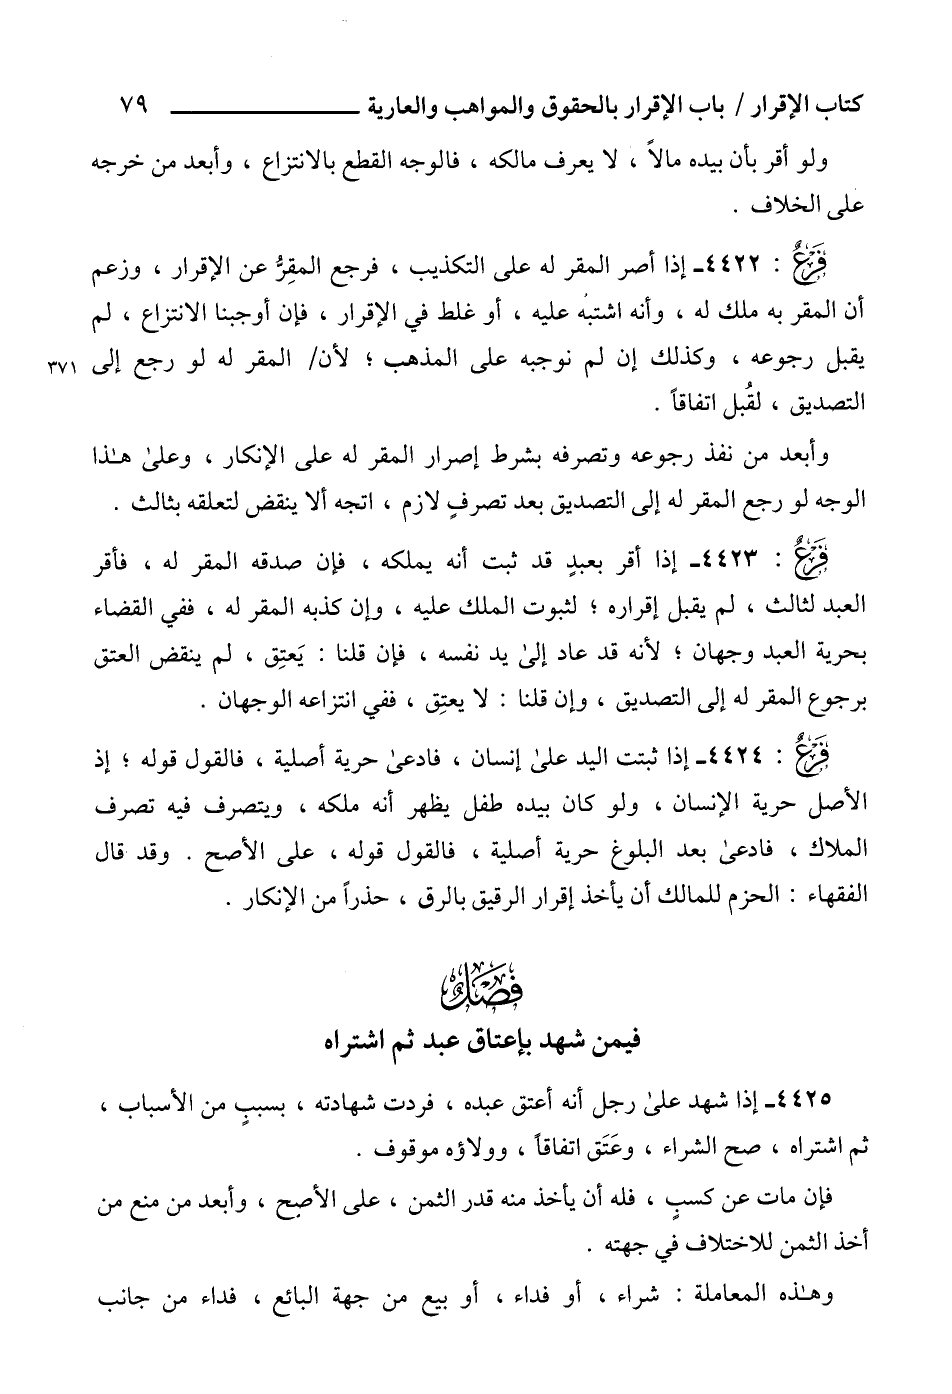 كتاب الإقرار / باب الإقرار بالحقوق والمواهب والعارية ــــــــــــــــ ٧٩
ولو أقر بأن بيده مالاً ، لا يعرف مالكه ، فالوجه القطع بالانتزاع ، وأبعد من خرجه
على الخلاف .
فَرْعٌ : ٤٤٢٢ـ إذا أصر المقر له على التكذيب ، فرجع المقِرُّ عن الإقرار ، وزعم
أن المقر به ملك له ، وأنه اشتبُه عليه ، أو غلط في الإقرار ، فإن أوجبنا الانتزاع ، لم
يقبل رجوعه ، وكذلك إن لم نوجبه على المذهب ؛ لأن/ المقر له لو رجع إلى ٣٧١
التصديق ، لقُبل اتفاقاً .
وأبعد من نفذ رجوعه وتصرفه بشرط إصرار المقر له على الإنكار ، وعلىٰ هـٰذا
الوجه لو رجع المقر له إلى التصديق بعد تصرفٍ لازم ، اتجه ألا ينقض لتعلقه بثالث .
فَرْعٌ : ٤٤٢٣ـ إذا أقر بعبدٍ قد ثبت أنه يملكه ، فإن صدقه المقر له ، فأقر
العبد لثالث ، لم يقبل إقراره ؛ لثبوت الملك عليه ، وإن كذبه المقر له ، ففي القضاء
بحرية العبد وجهان ؛ لأنه قد عاد إلىٰ يد نفسه ، فإن قلنا : يَعتِق ، لم ينقض العتق
برجوع المقر له إلى التصديق ، وإن قلنا : لا يعتِق ، ففي انتزاعه الوجهان .
فَرْعٌ : ٤٤٢٤ـ إذا ثبتت اليد علىٰ إنسان ، فادعىٰ حرية أصلية ، فالقول قوله ؛ إذ
الأصل حرية الإنسان ، ولو كان بيده طفل يظهر أنه ملكه ، ويتصرف فيه تصرف
الملاك ، فادعىٰ بعد البلوغ حرية أصلية ، فالقول قوله ، على الأصح . وقد قال
الفقهاء : الحزم للمالك أن يأخذ إقرار الرقيق بالرق ، حذراً من الإنكار .
فَصْلٌ
فيمن شهد بإعتاق عبد ثم اشتراه
٤٤٢٥ـ إذا شهد علىٰ رجل أنه أعتق عبده ، فردت شهادته ، بسببٍ من الأسباب ،
ثم اشتراه ، صح الشراء ، وعَتَق اتفاقاً ، وولاؤه موقوف .
فإن مات عن كسبٍ ، فله أن يأخذ منه قدر الثمن ، على الأصح ، وأبعد من منع من
أخذ الثمن للاختلاف في جهته .
وهـٰذه المعاملة : شراء ، أو فداء ، أو بيع من جهة البائع ، فداء من جانب